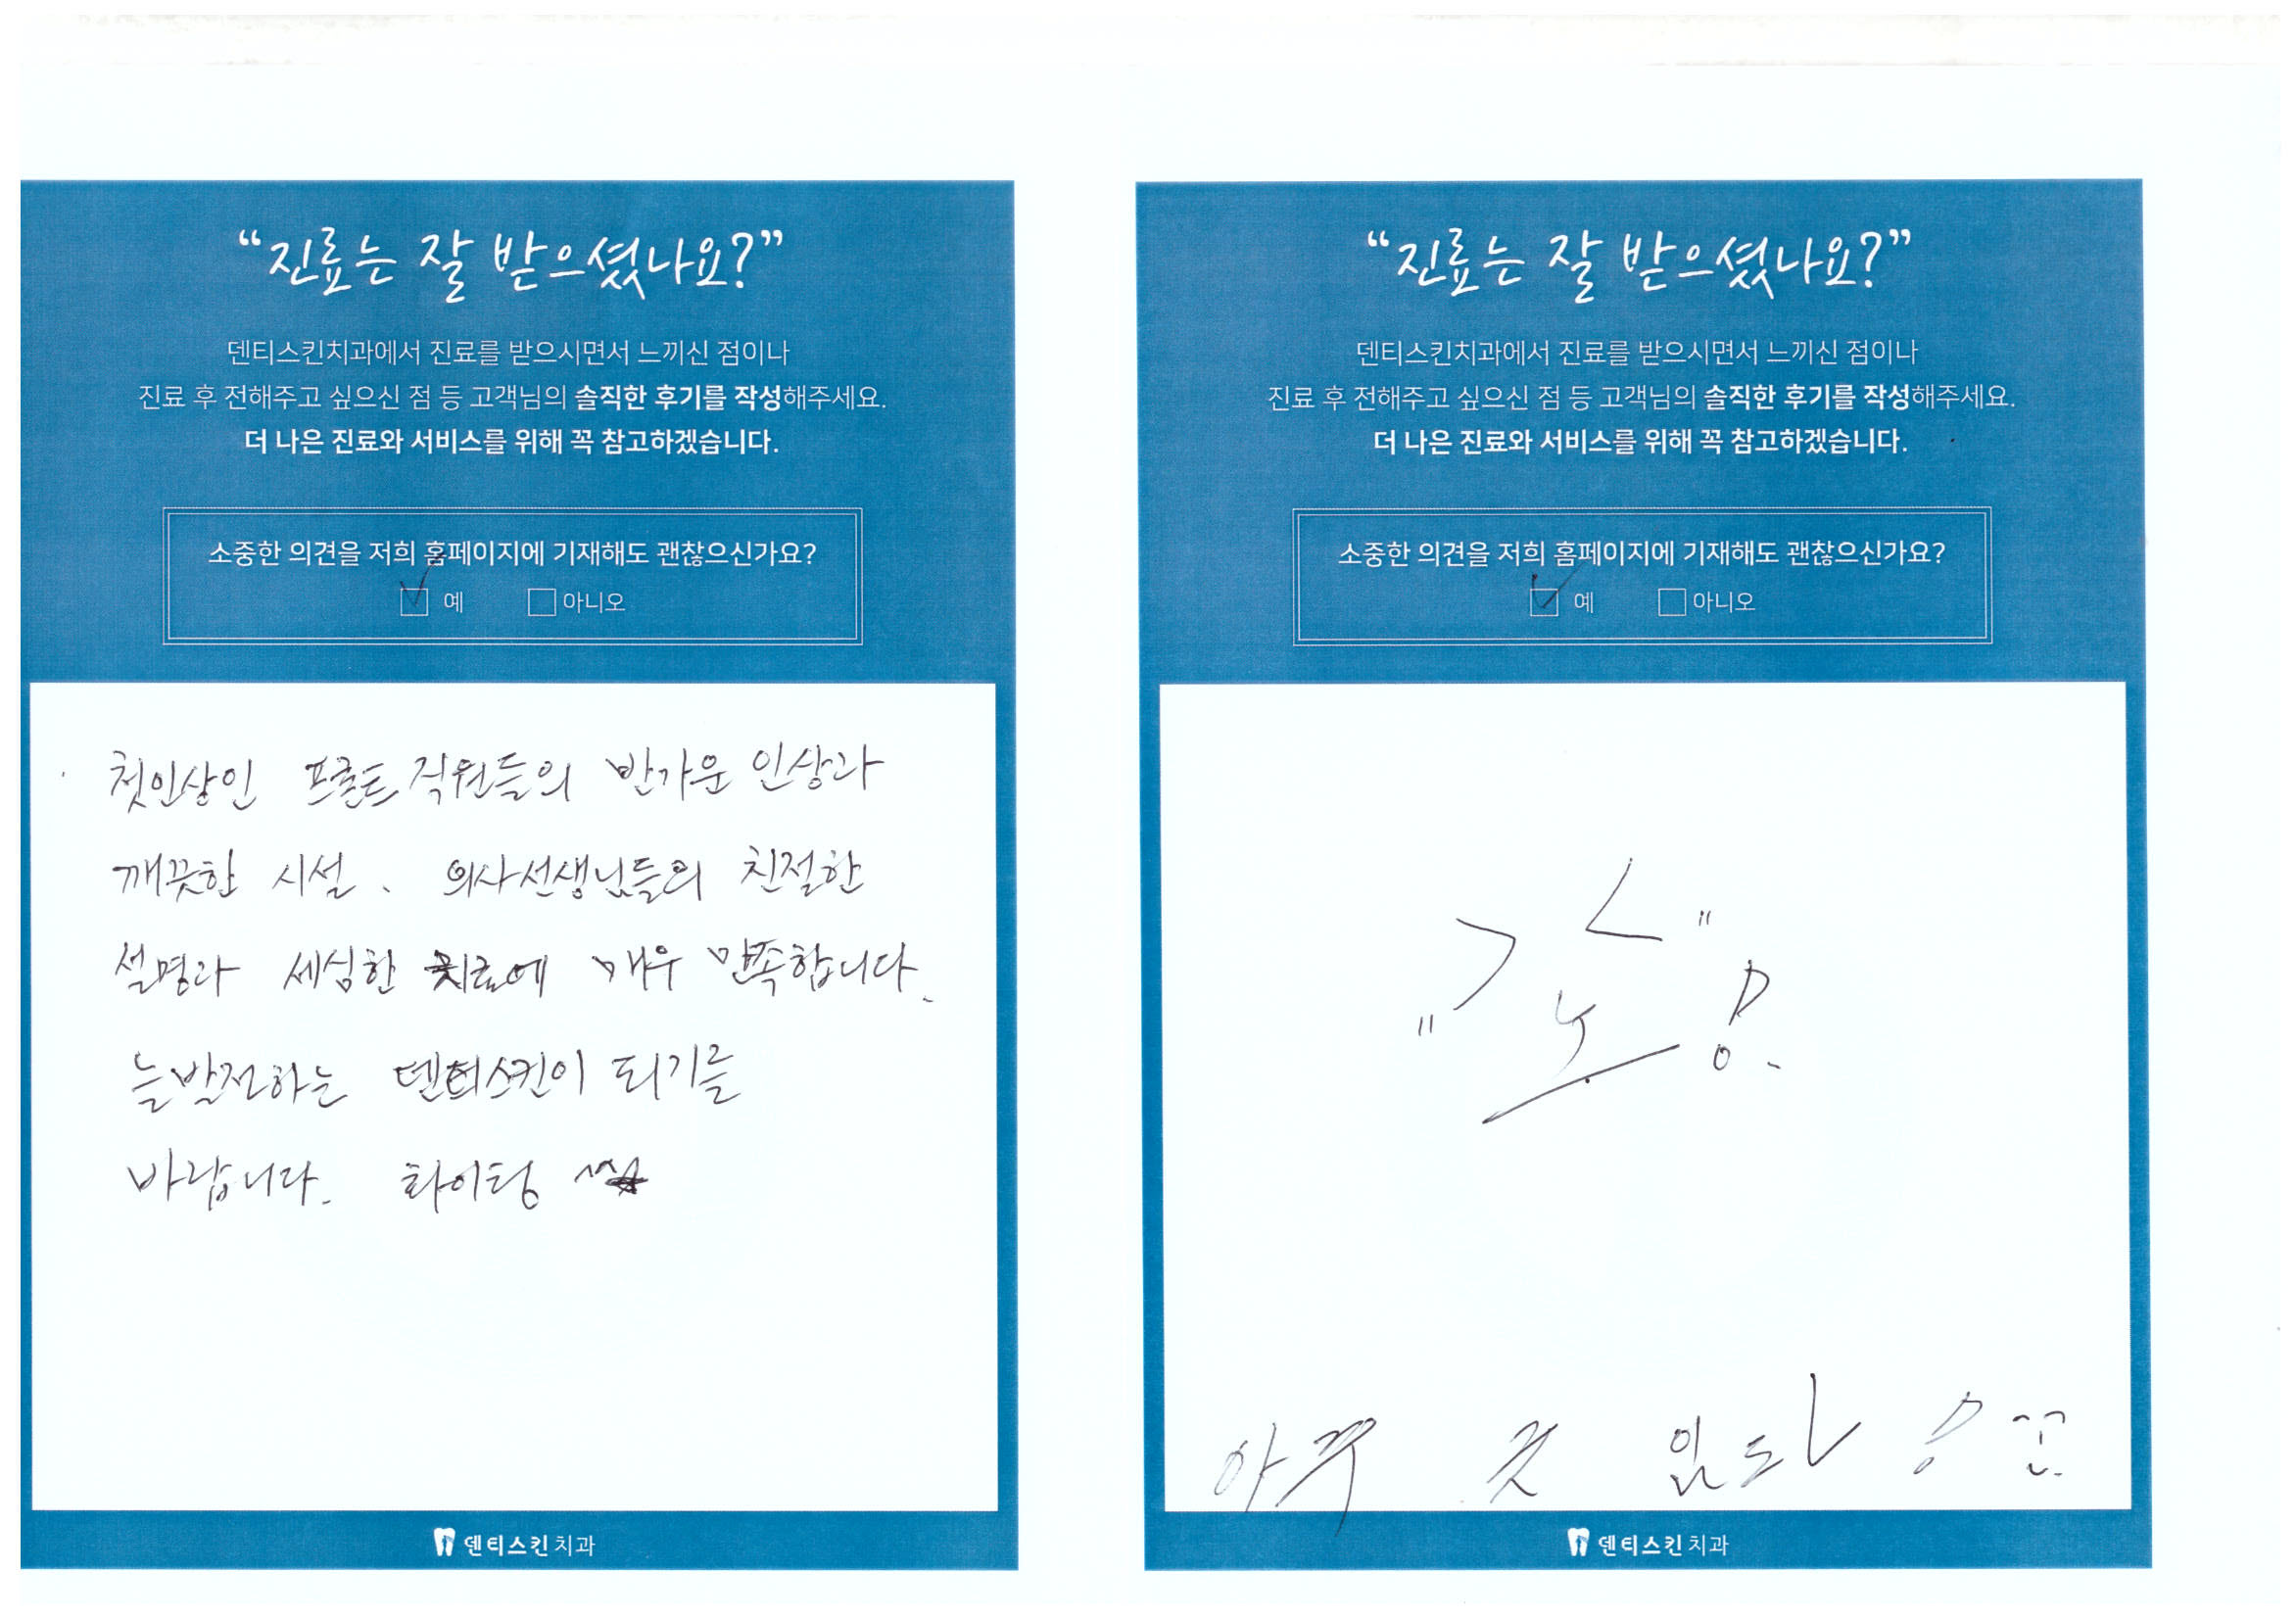 “진료는 잘 받으셨나요?”
덴티스킨치과에서 진료를 받으시면서 느끼신 점이나
진료 후 전해주고 싶으신 점 등 고객님의 솔직한 후기를 작성해주세요.
더 나은 진료와 서비스를 위해 꼭 참고하겠습니다.
소중한 의견을 저희 홈페이지에 기재해도 괜찮으신가요?
예 아니오
첫인상인 프론트 직원들의 반가운 인상과
깨끗한 시설、 의사선생님들의 친절한
설명과 세심한 치료에 매우 만족합니다.
늘발전하는 덴티스킨이 되기를
바랍니다. 화이팅
덴티스킨치과
“진료는 잘 받으셨나요?”
덴티스킨치과에서 진료를 받으시면서 느끼신 점이나
진료 후 전해주고 싶으신 점 등 고객님의 솔직한 후기를 작성해주세요.
더 나은 진료와 서비스를 위해 꼭 참고하겠습니다.
소중한 의견을 저희 홈페이지에 기재해도 괜찮으신가요?
예 아니오
덴티스킨치과